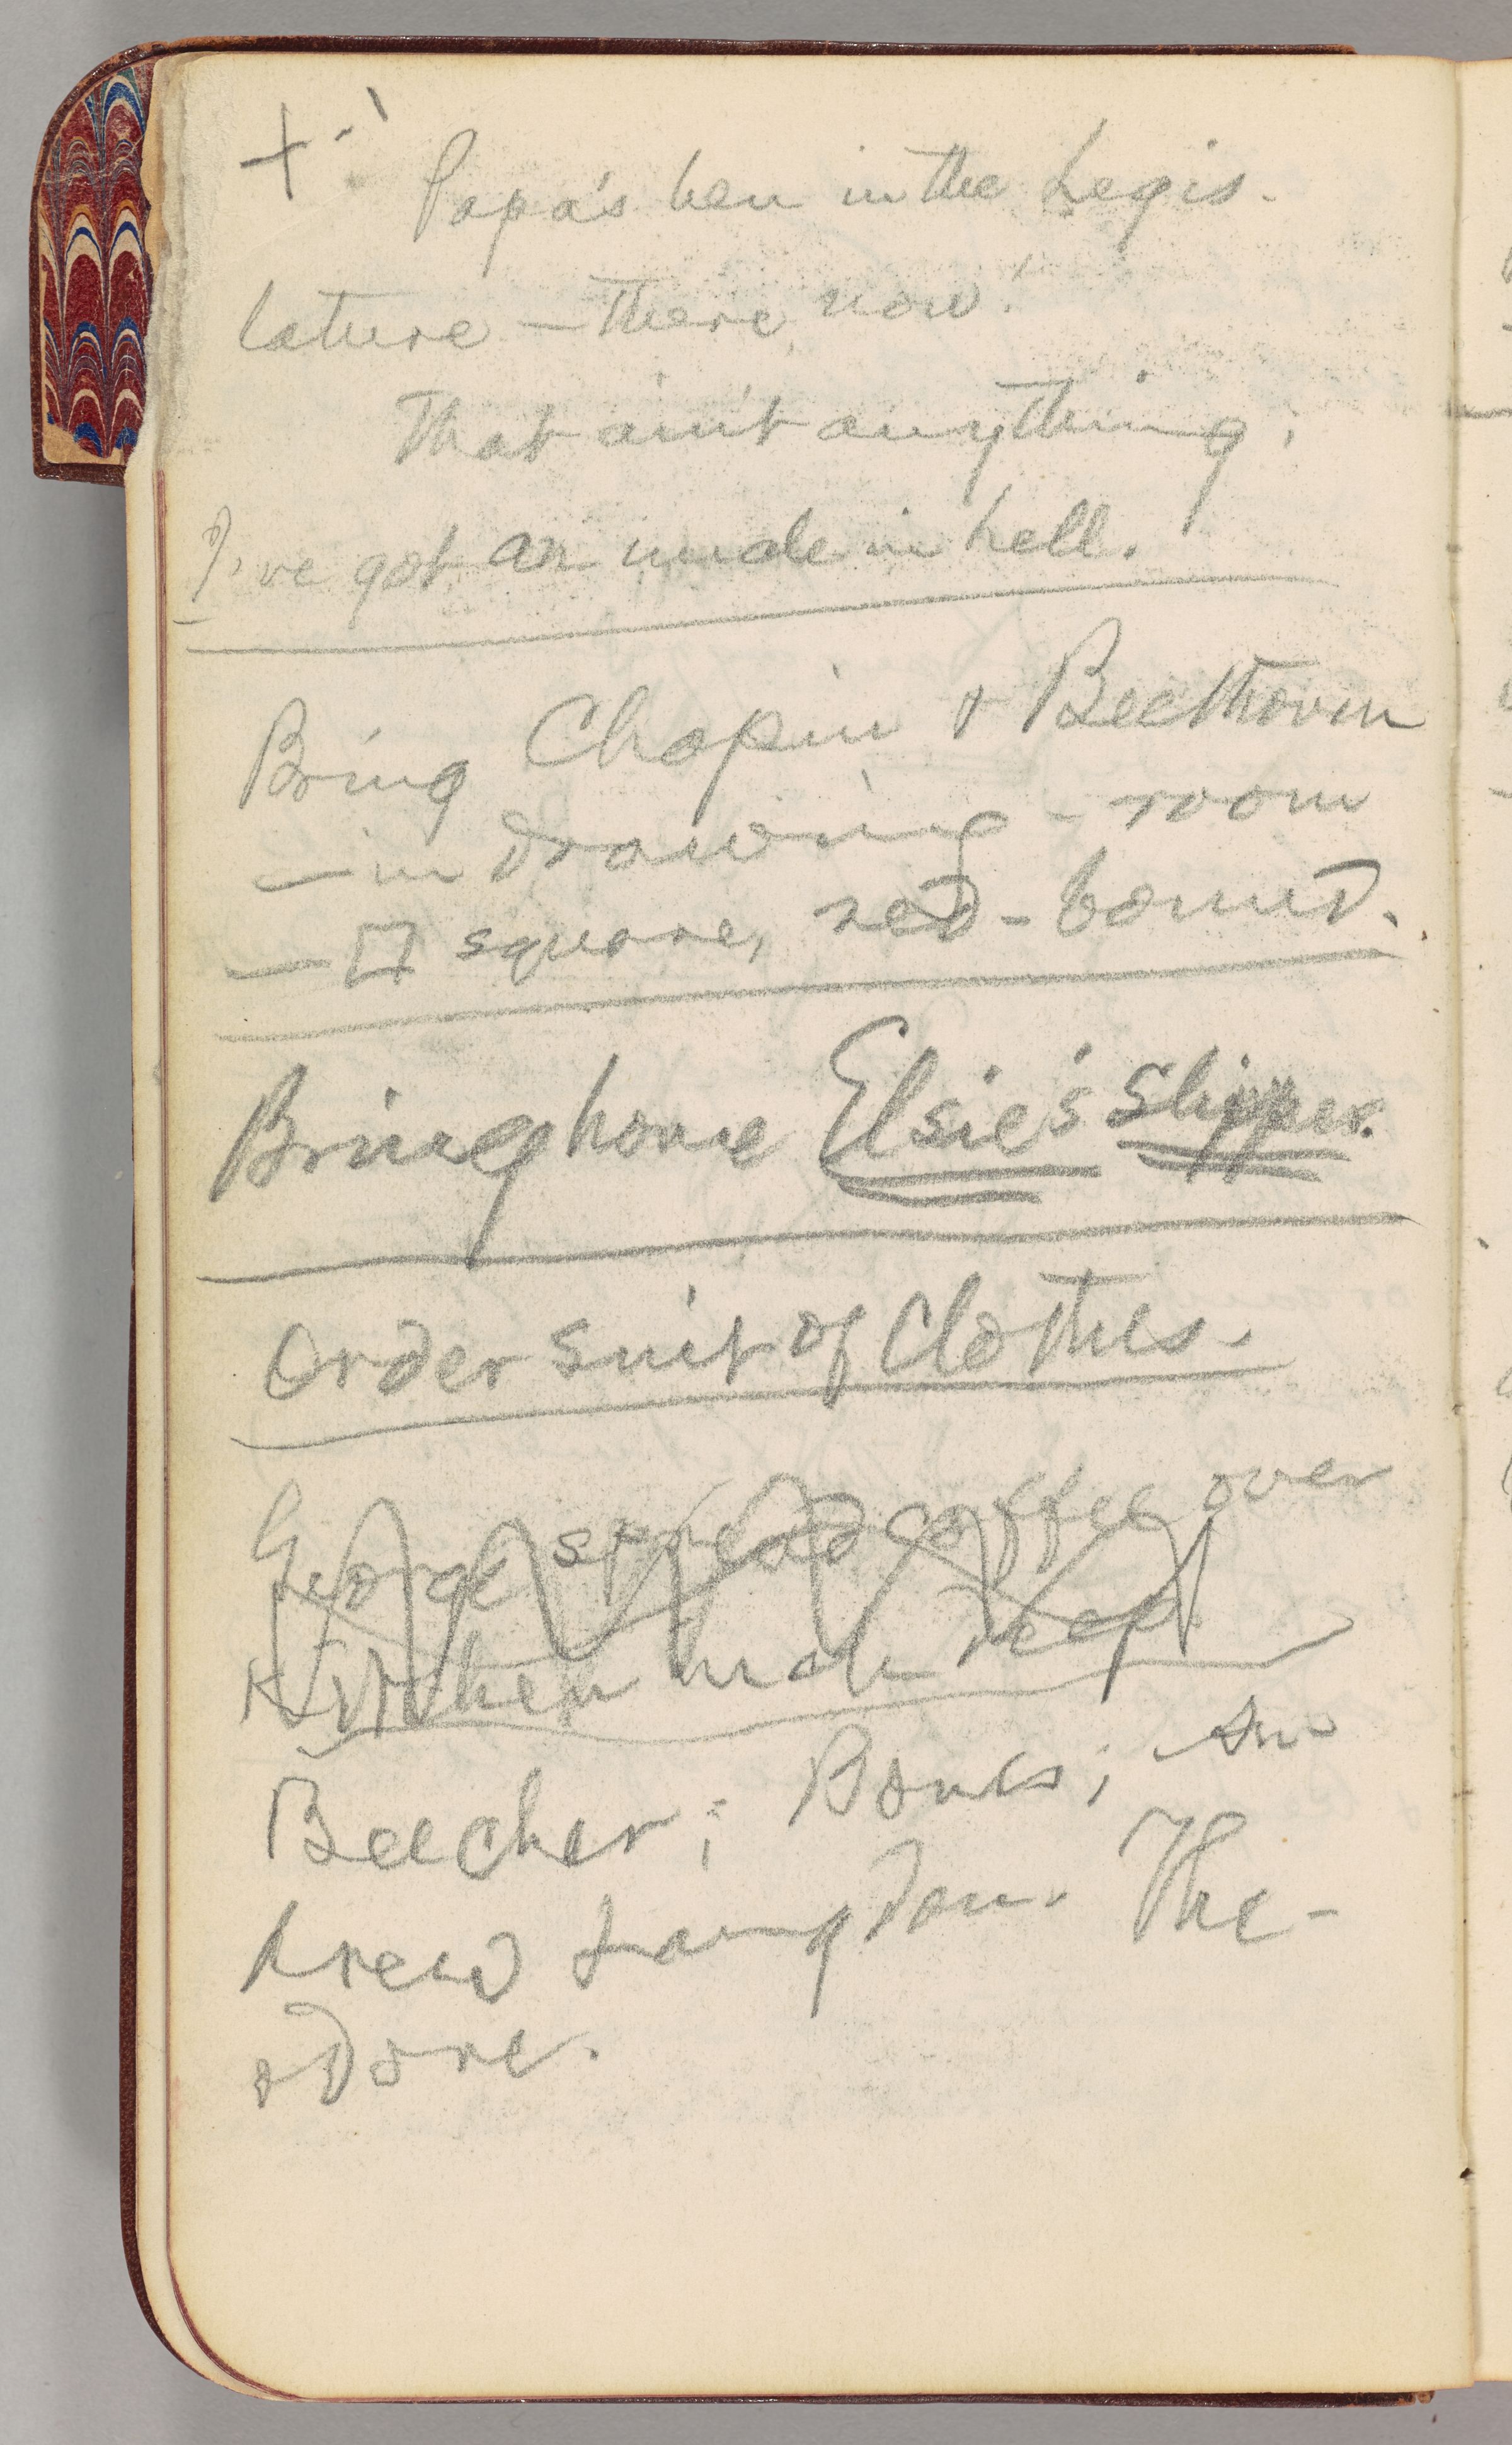 Papa's ben in the Legis-
lature — there, now!
That ain't anything;
I've got an uncle in hell.
Bring Chopin & Beethoven
— in drawing-room
— square, red-bound.
Bring home Elsie's slipper.
Order suit of clothes.
George spread coffee over
Kitchen ash heap
Beecher;
drew Langdon. The-
odore.